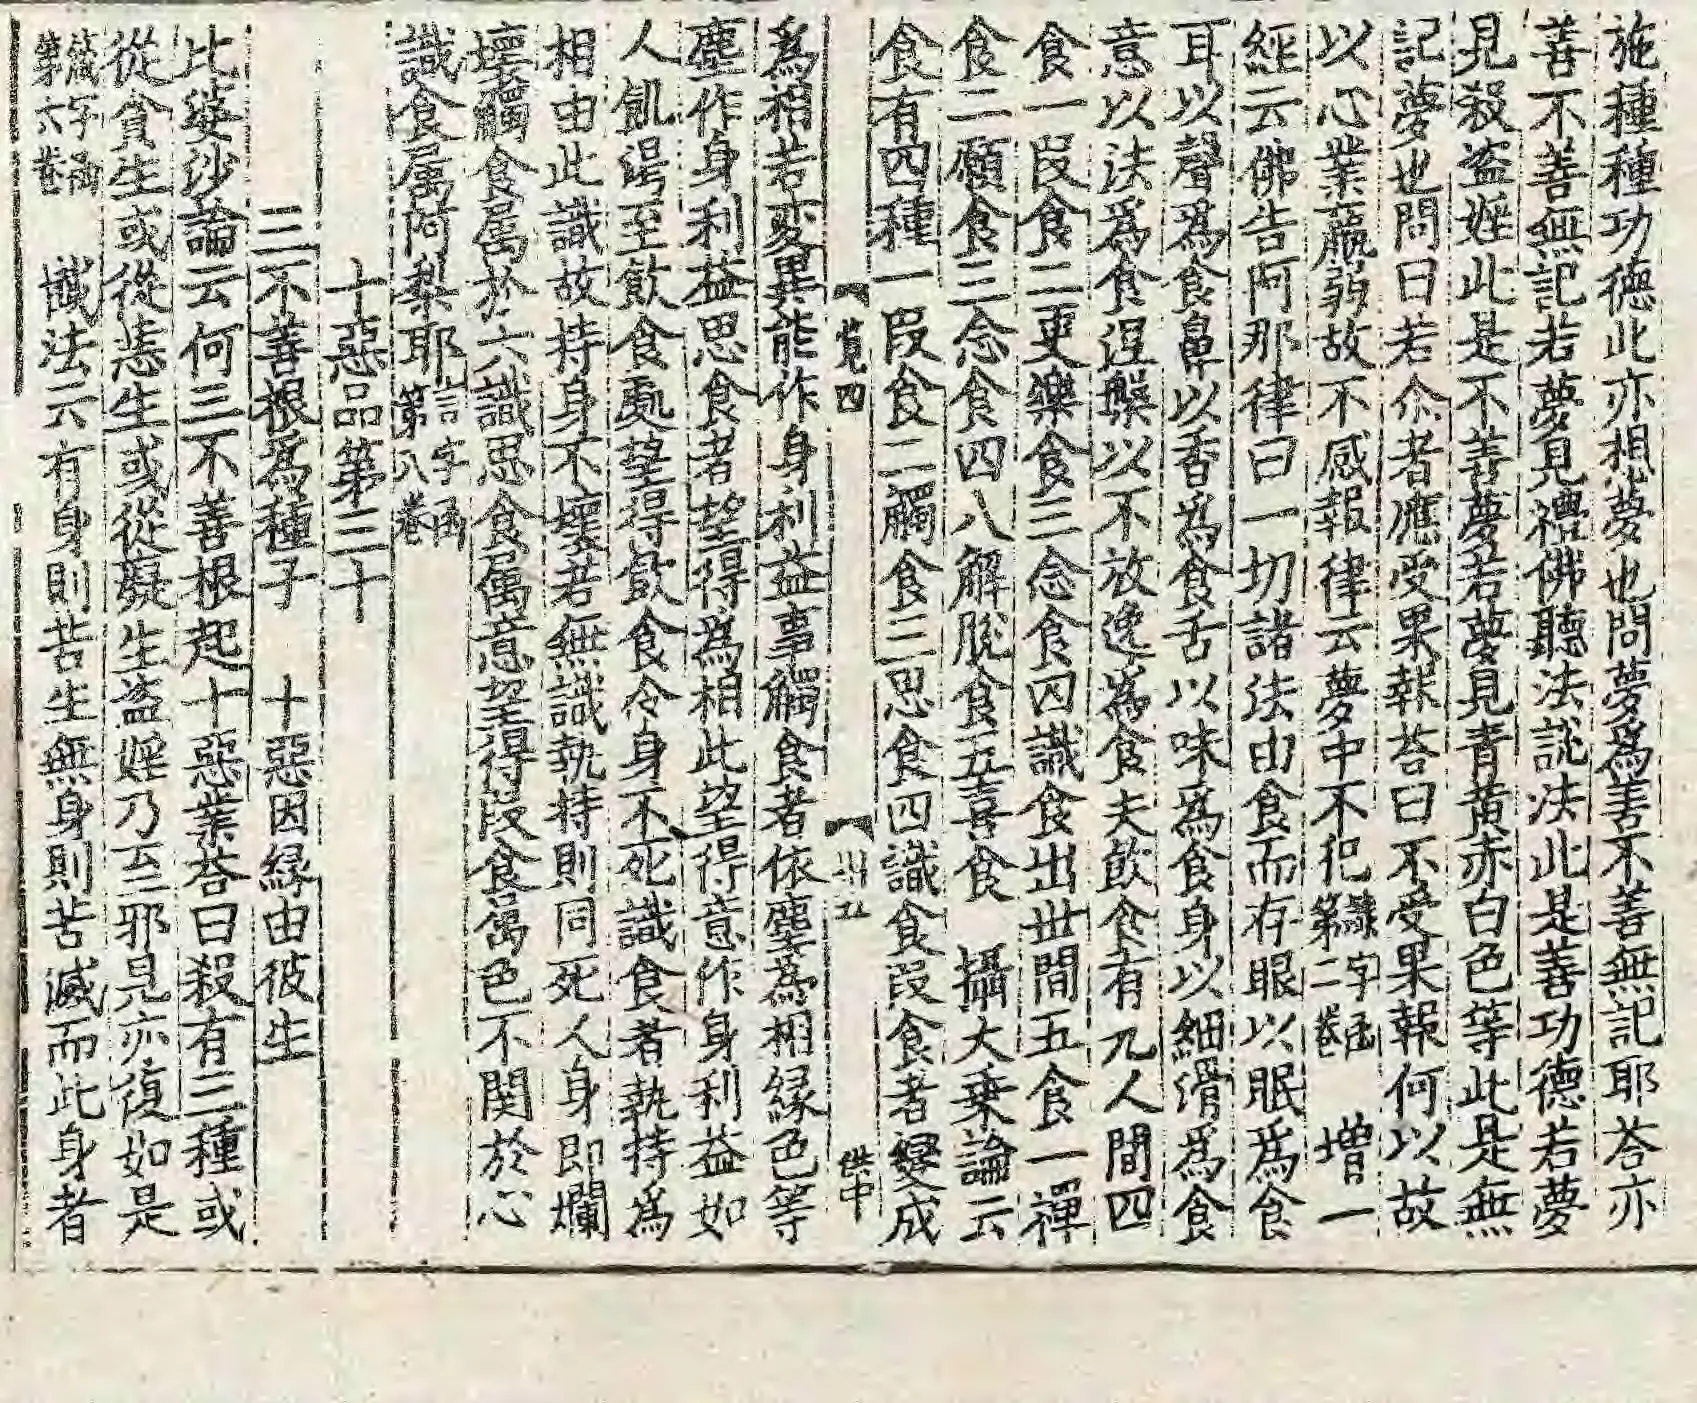 施種種功德此亦想夢也問夢爲善不善無記耶荅亦
善不善無記若夢見禮佛聽法説法此是善功德若夢
見殺盜婬此是不善夢若夢見青黄赤白色等此是無
記夢也問曰若尒者應受果報荅曰不受果報何以故
以心業羸弱故不感報律云夢中不犯第二卷 増一
經云佛告阿那律曰一切諸法由食而存眼以眠爲食
耳以聲爲食鼻以香爲食舌以味爲食身以細滑爲食
意以法爲食涅槃以不放逸爲食夫飲食有九人間四
食一段食二更樂食三念食四識食出世間五食一禪
食二願食三念食四八解脱食五喜食 攝大乗論云
食有四種一段食二觸食三思食四識食段食者變成
覽四 卅五 供中
爲相若変異能作身利益事觸食者依塵爲相縁色等
塵作身利益思食者望得爲相此望得意作身利益如
人飢渇至飲食處望得飲食令身不死識食者執持爲
相由此識故持身不壞若無識執持則同死人身即爛
壞觸食属於六識思食属意望得段食属色不関於心
識食属阿梨耶言字函第八卷
十惡品第三十
三不善根爲種子 十惡因縁由彼生
比婆沙論云何三不善根起十惡業荅曰殺有三種或
從貪生或從恚生或從癡生盜婬乃至邪見亦復如是
第六卷 懺法云有身則苦生無身則苦滅而此身者